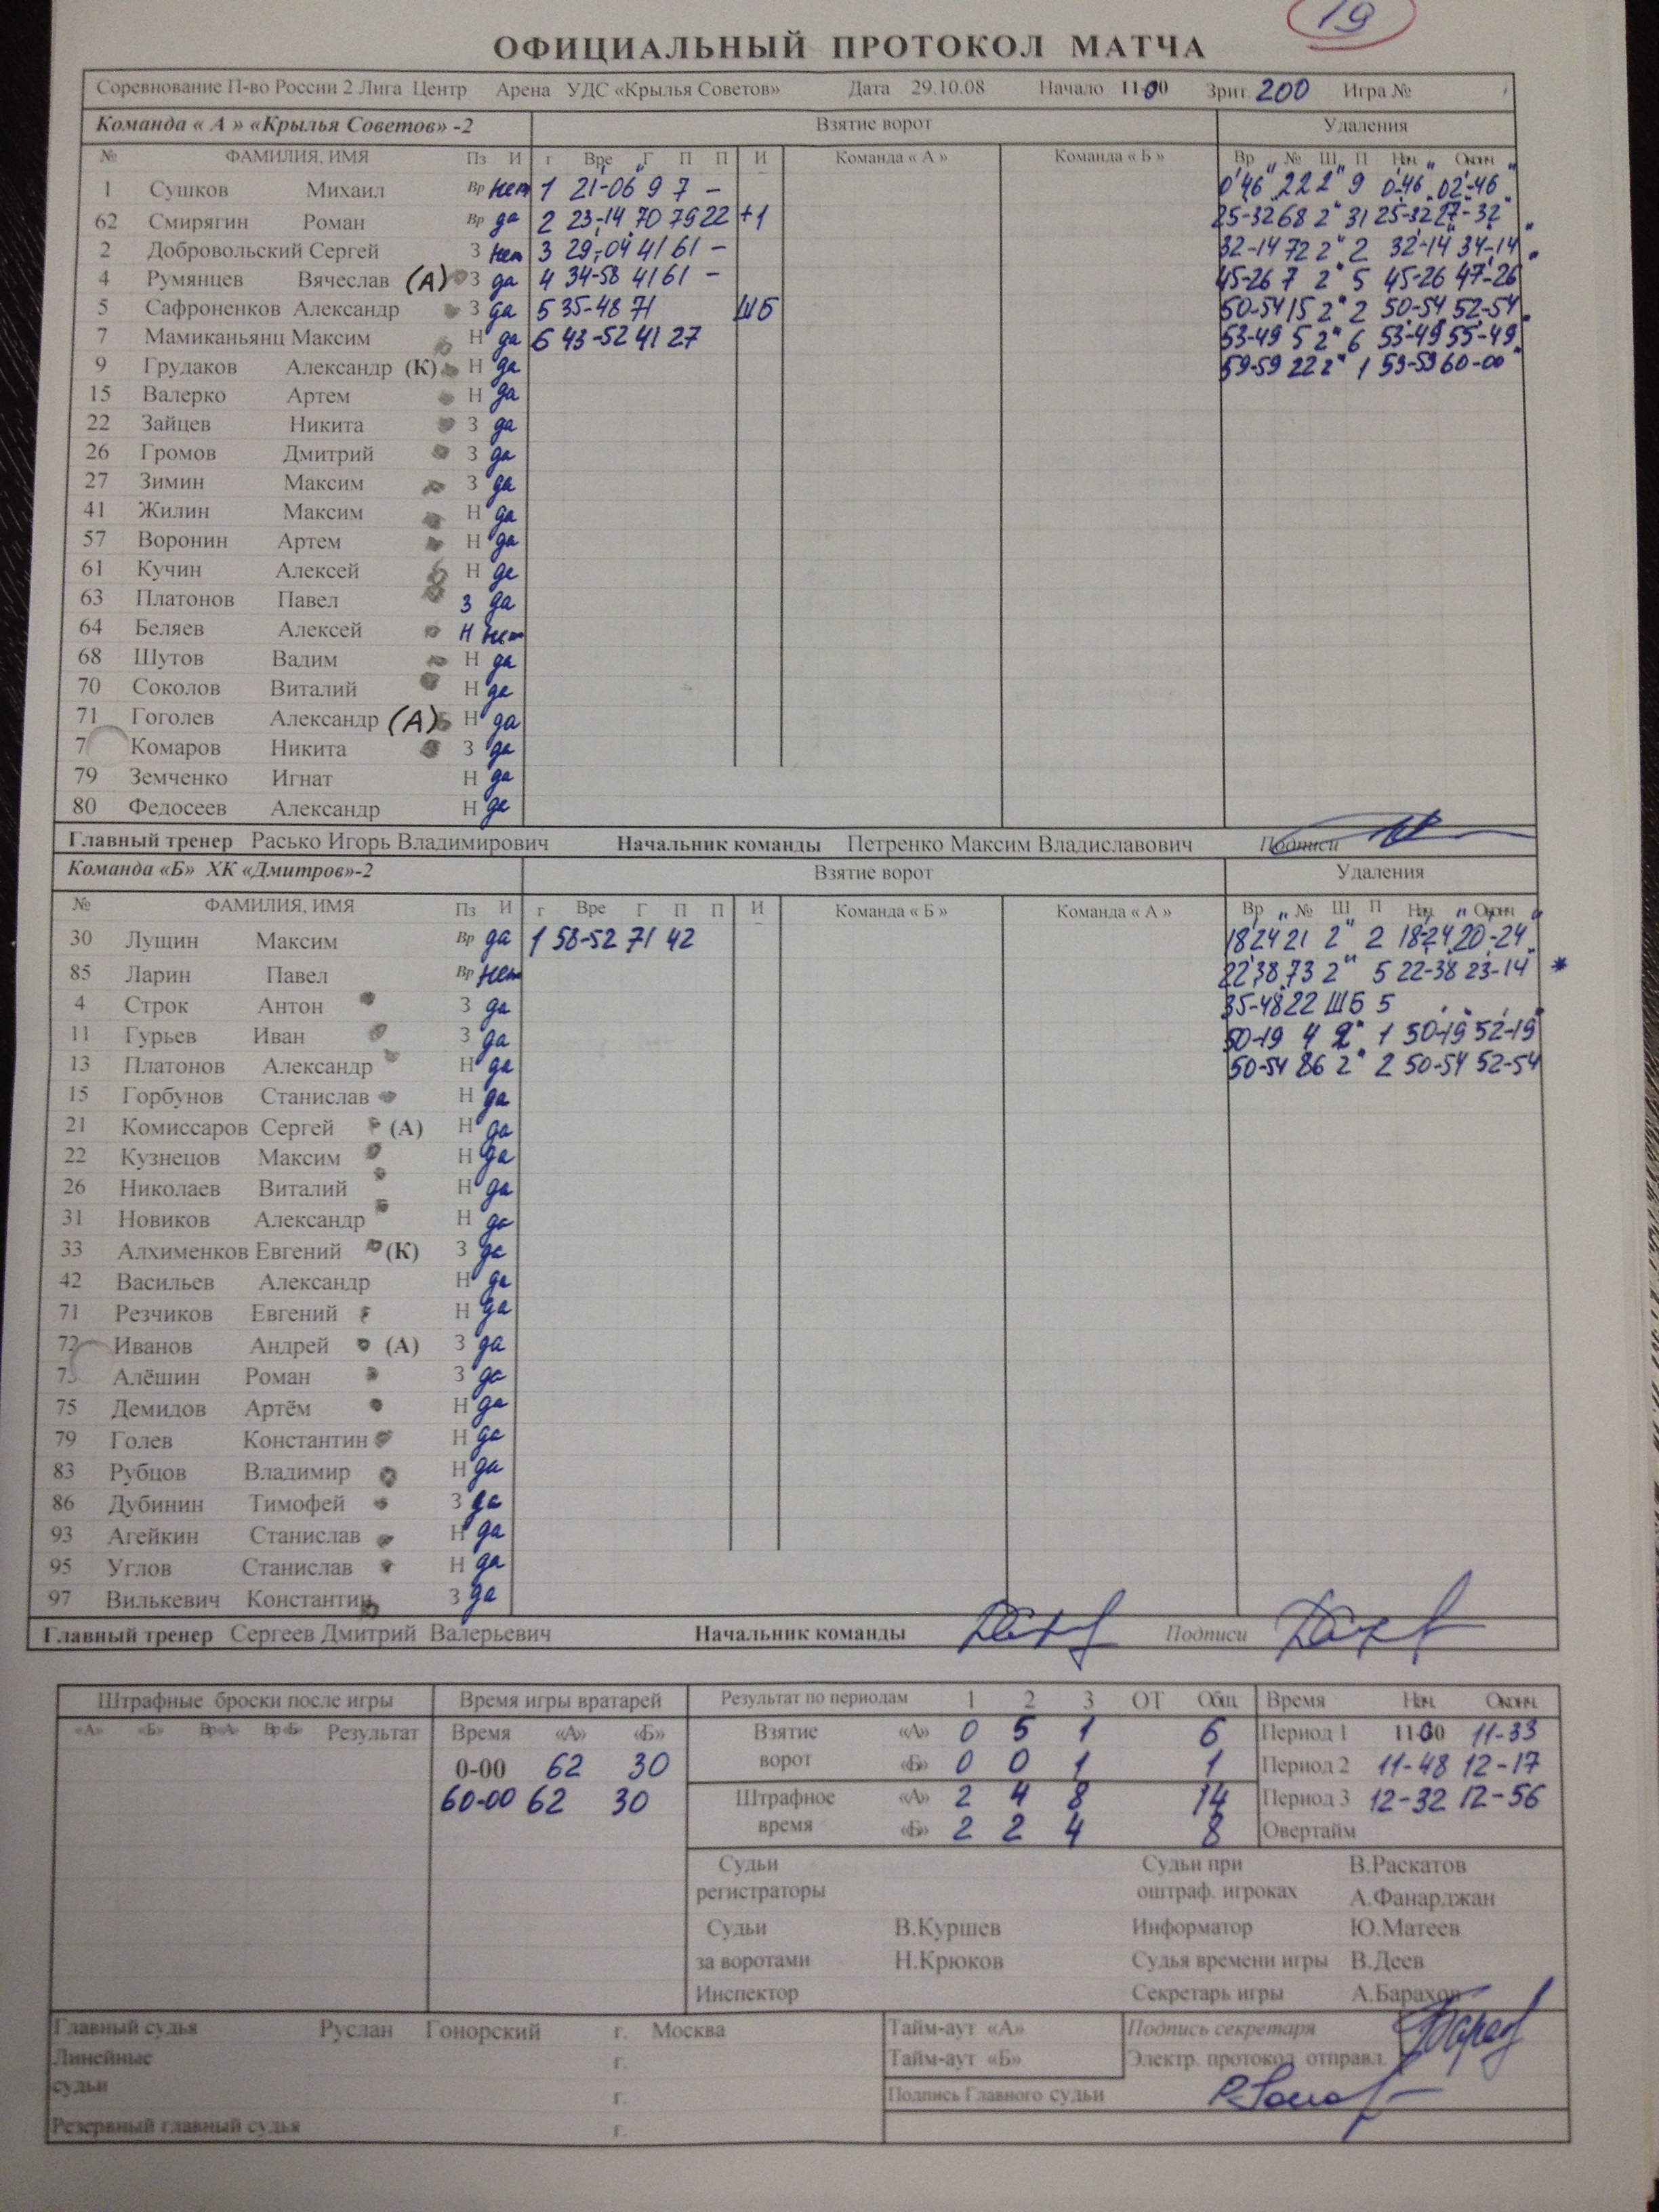 19
ОФИЦИАЛЬНЫЙ ПРОТОКОЛ МАТЧА
Соревнование П-во России 2 Лига Центр Арена УДС «Крылья Советов» Дата 29.10.08 Начало 11-00 Зрит. 200 Игра №
Команда « А » «Крылья Советов» -2 Взятие ворот Удаления
№ ФАМИЛИЯ, ИМЯ Пз И г Вре Г П П И Команда « А » Команда « Б » Вр № Ш П Нач Оконч
1 Сушков Михаил Вр нет 1 21-06 9 7 – 0'46" 22 2" 9 0-46 02-46
62 Смирягин Роман Вр да 2 23-14 70 79 22 +1 25-32 68 2" 31 25-32 27-32
2 Добровольский Сергей З нет 3 29-04 41 61 – 32-14 72 2" 2 32-14 34-14
4 Румянцев Вячеслав (А) З да 4 34-58 41 61 – 45-26 7 2" 5 45-26 47-26
5 Сафроненков Александр З да 5 35-48 71 ШБ 50-54 15 2" 2 50-54 52-54
7 Мамиканьянц Максим Н да 6 43-52 41 27 53-49 5 2" 6 53-49 55-49
9 Грудаков Александр (К) Н да 59-59 22 2" 1 59-59 60-00
15 Валерко Артем Н да
22 Зайцев Никита З да
26 Громов Дмитрий З да
27 Зимин Максим З да
41 Жилин Максим Н да
57 Воронин Артем Н да
61 Кучин Алексей Н да
63 Платонов Павел З да
64 Беляев Алексей Н нет
68 Шутов Вадим Н да
70 Соколов Виталий Н да
71 Гоголев Александр (А) Н да
7 Комаров Никита З да
79 Земченко Игнат Н да
80 Федосеев Александр Н да
Главный тренер Расько Игорь Владимирович Начальник команды Петренко Максим Владиславович Подписи
Команда «Б» ХК «Дмитров»-2 Взятие ворот Удаления
№ ФАМИЛИЯ, ИМЯ Пз И г Вре Г П П И Команда « Б » Команда « А » Вр № Ш П Нач Оконч
30 Лущин Максим Вр да 1 58-52 71 42 18'24 21 2" 2 18-24 20-24
85 Ларин Павел Вр нет 22'38 73 2" 5 22-38 23-14 *
4 Строк Антон З да 35-48 22 ШБ 5
11 Гурьев Иван З да 50-19 4 2" 1 50-19 52-19
13 Платонов Александр Н да 50-54 86 2" 2 50-54 52-54
15 Горбунов Станислав Н да
21 Комиссаров Сергей (А) Н да
22 Кузнецов Максим Н да
26 Николаев Виталий Н да
31 Новиков Александр Н да
33 Алхименков Евгений (К) З да
42 Васильев Александр Н да
71 Резчиков Евгений Н да
72 Иванов Андрей (А) З да
73 Алёшин Роман З да
75 Демидов Артём Н да
79 Голев Константин Н да
83 Рубцов Владимир Н да
86 Дубинин Тимофей З да
93 Агейкин Станислав Н да
95 Углов Станислав Н да
97 Вилькевич Константин З да
Главный тренер Сергеев Дмитрий Валерьевич Начальник команды Подписи
Штрафные броски после игры Время игры вратарей Результат по периодам 1 2 3 ОТ Общ Время Нач. Оконч.
«А» «Б» Вр«А» Вр«Б» Результат Время «А» «Б» Взятие «А» 0 5 1 6 Период 1 11-00 11-33
0-00 62 30 ворот «Б» 0 0 1 1 Период 2 11-48 12-17
60-00 62 30 Штрафное «А» 2 4 8 14 Период 3 12-32 12-56
время «Б» 2 2 4 8 Овертайм
Судьи Судьи при В.Раскатов
регистраторы оштраф. игроках А.Фанарджан
Судьи В.Куршев Информатор Ю.Матеев
за воротами Н.Крюков Судья времени игры В.Деев
Инспектор Секретарь игры А.Барахов
Главный судья Руслан Гонорский г. Москва Тайм-аут «А» Подпись секретаря
Линейные г. Тайм-аут «Б» Электр. протокол отправл.
судьи г. Подпись Главного судьи
Резервный главный судья г.